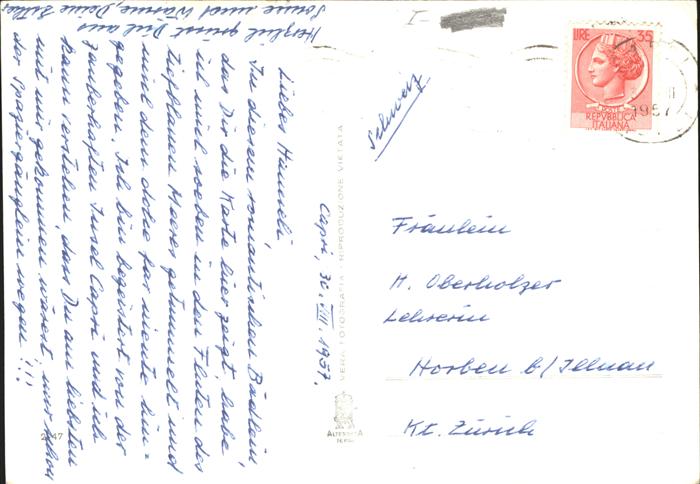 Capri, 30. VIII. 1957.
Liebes Hanneli,
In diesem romantischen Bädlein,
das Dir die Karte hier zeigt, habe
ich mich soeben in den Fluten des
tiefblauen Meeres getummelt und
mich dem dolce far niente hin-
gegeben. Ich bin begeistert von der
zauberhaften Insel Capri und ich
kann verstehen, dass Du am liebsten
mit mir gekommen wärest, nur schon
der Spaziergänglein wegen!!!
Herzlich grüsst Dich aus
Sonne und Wärme, Deine
Schweiz
Fräulein
H. Oberholzer
Lehrerin
Horben b/ Illnau
Kt. Zürich
LIRE 35
POSTE
REPVBBLICA
ITALIANA
1957
VERA FOTOGRAFIA - RIPRODUZIONE VIETATA